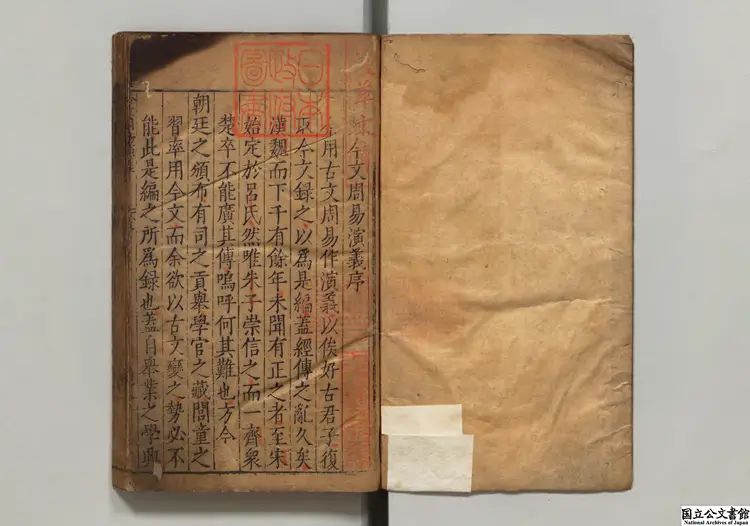 今文周易演義序
用古文周易作演義以俟好古君子復
取今文録之以為是編蓋經傳之亂久矣
漢魏而下千有餘年未聞有正之者至宋
始定於呂氏然唯朱子崇信之而一齊衆
楚卒不能廣其傳嗚呼何其難也方今
朝廷之頒布有司之貢舉學官之藏閭童之
習率用今文而余欲以古文變之勢必不
能此是編之所為録也蓋自舉業之學興
日本
圖書
国立公文書館
National Archives of Japan